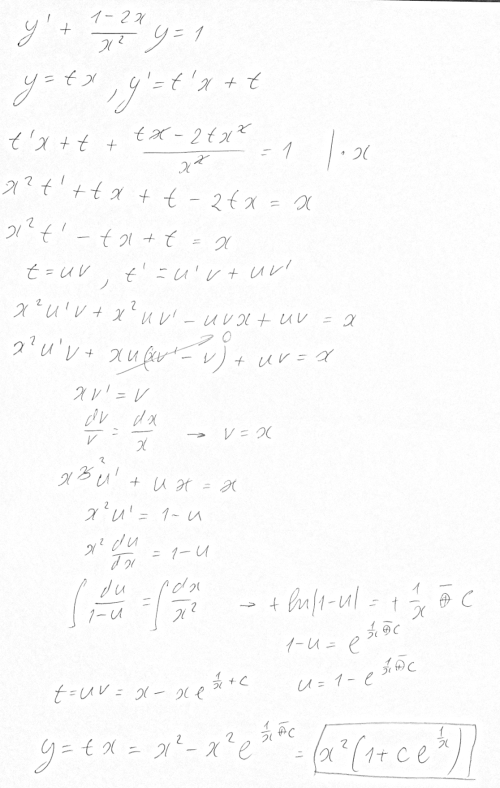 y' + (1-2x)/x² y = 1
y = tx , y' = t'x + t
t'x + t + (tx - 2tx²)/x² = 1 | · x
x²t' + tx + t - 2tx = x
x²t' - tx + t = x
t = uv , t' = u'v + uv'
x²u'v + x²uv' - uvx + uv = x
x²u'v + xu(xv' - v) + uv = x
0
xv' = v
dv/v = dx/x → v = x
x³u' + ux = x
x²u' = 1 - u
x² du/dx = 1 - u
∫ du/(1-u) = ∫ dx/x² → + ln|1-u| = + 1/x ∓ c
1 - u = e^(1/x ∓ c)
t = uv = x - xe^(1/x + c) u = 1 - e^(1/x ∓ c)
y = tx = x² - x²e^(1/x ∓ c) = x²(1 + ce^(1/x))